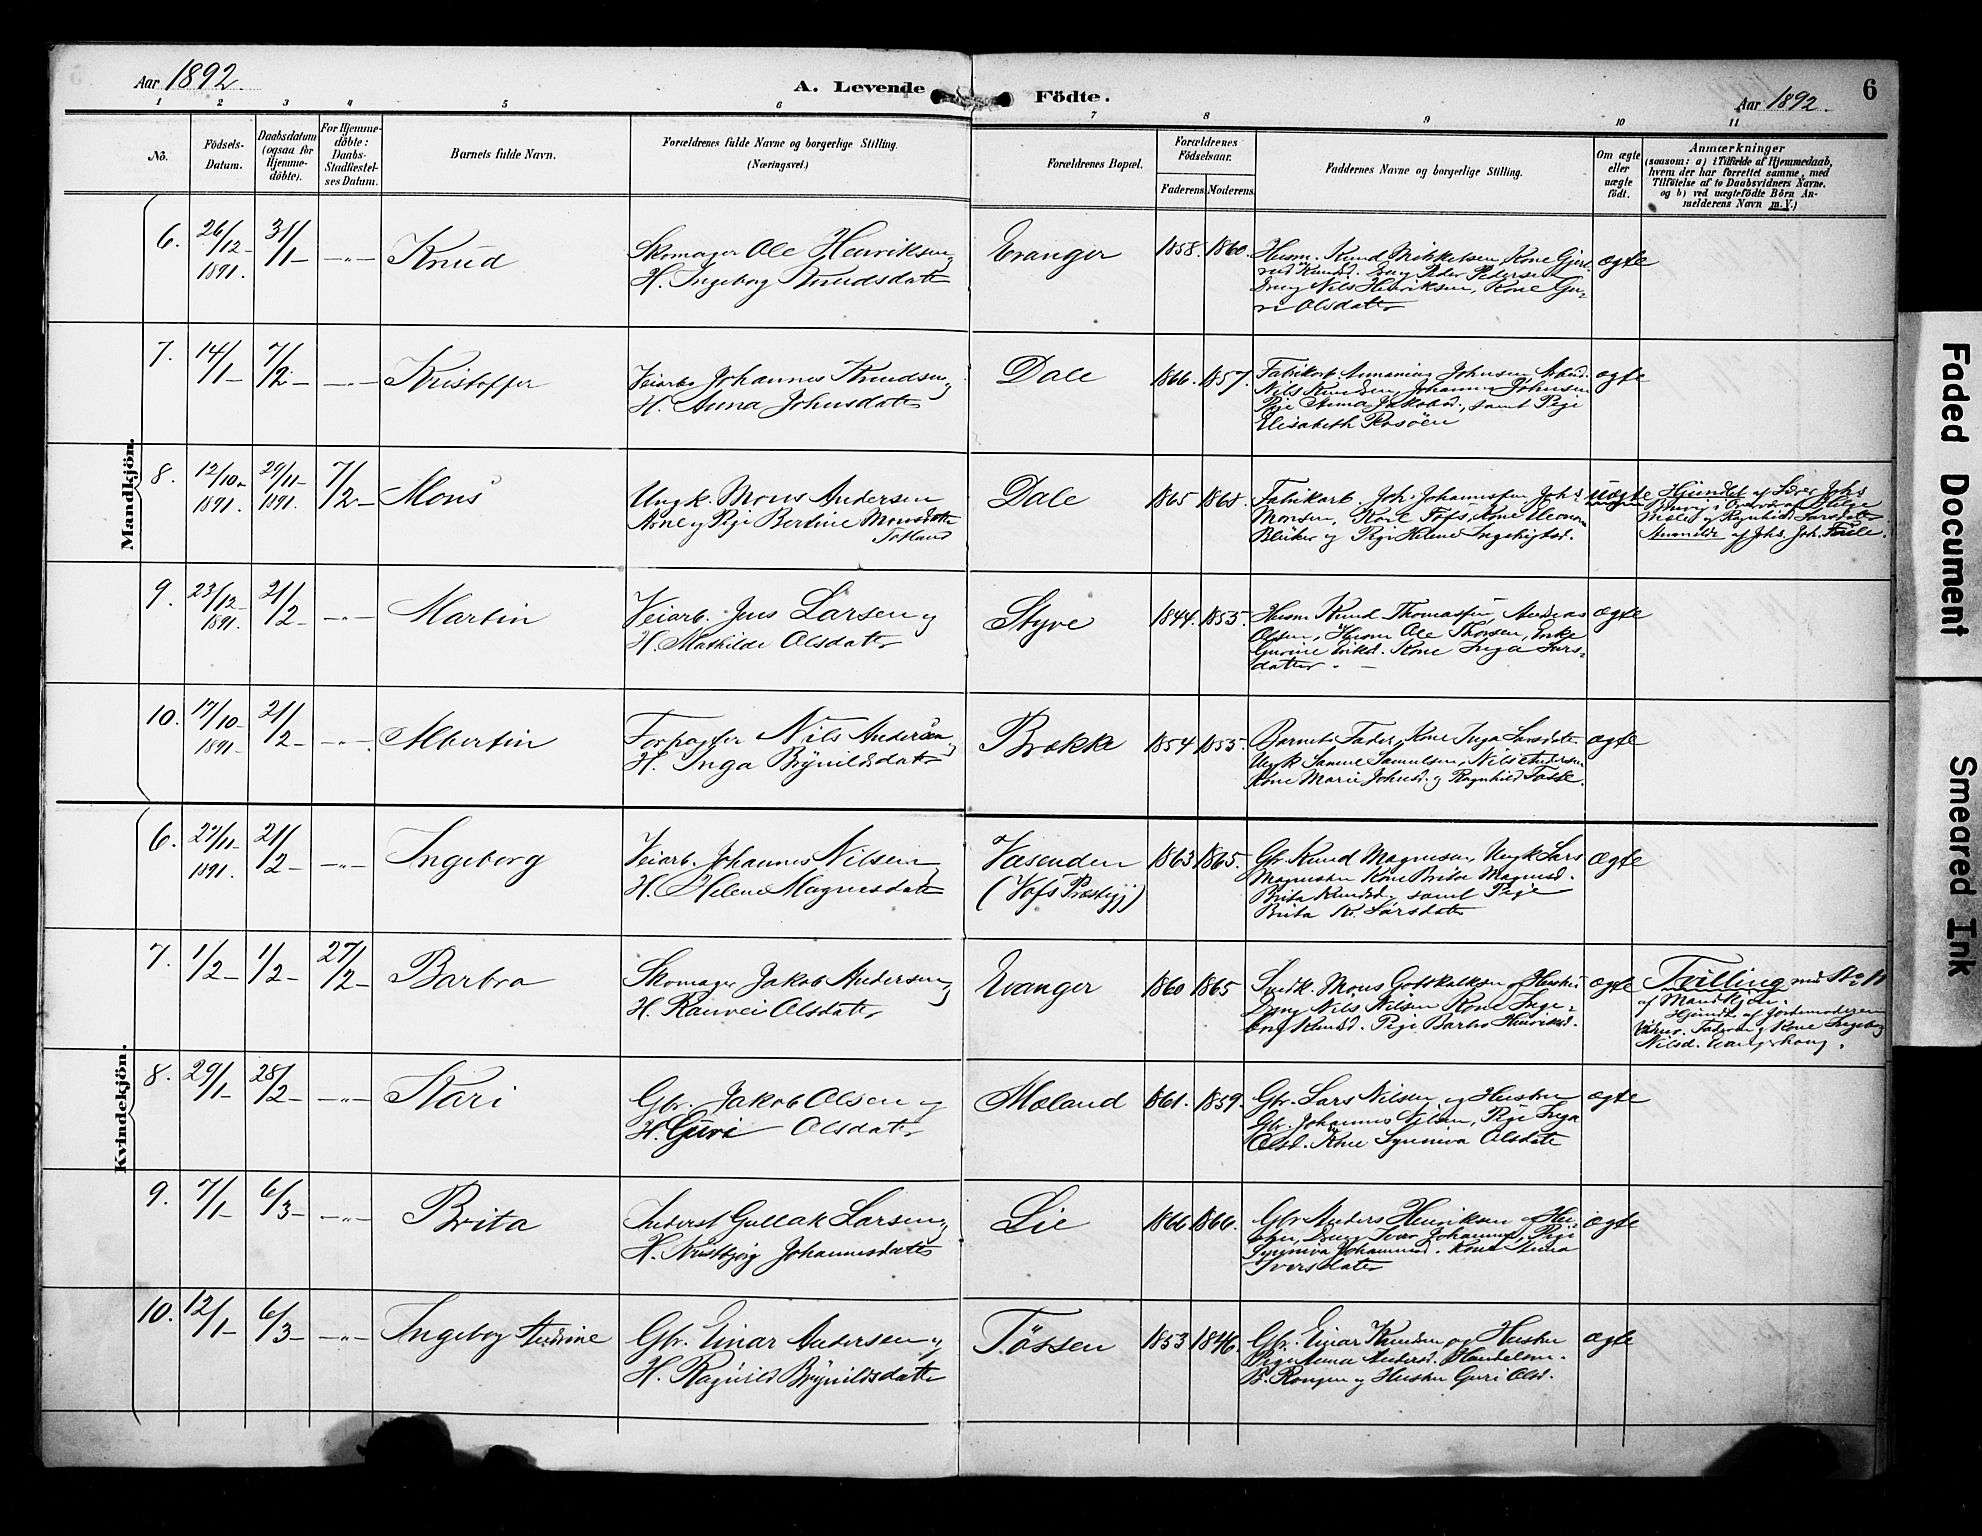 Aar 1892.
A. Levende Födte.
Aar 1892.
6
1 2 3 4 5 6 7 8 9 10 11
No.
Födsels-
Datum.
Daabsdatum
(ogsaa for
Hjemme-
döbte).
For Hjemme-
döbte:
Daabs-
Stadfæstel-
ses Datum.
Barnets fulde Navn.
Forældrenes fulde Navne og borgerlige Stilling.
(Næringsvei.)
Forældrenes Bopæl.
Forældrenes
Födselsaar.
Faderens. Moderens.
Faddernes Navne og borgerlige Stilling.
Om ægte
eller
uægte
födt.
Anmærkninger
(saasom: a) i Tilfælde af Hjemmedaab,
hvem der har forrettet samme, med
Tilföielse af to Daabsvidners Navne,
og b) ved uægtefödte Börn An-
melderens Navn m. V.)
Mandkjön.
6. 26/12 1891. 31/1 -"- Knud
Skomager Ole Henriksen
H. Ingeborg Knudsdatter
Evanger 1858. 1860.
Husm. Knud Mikkelsen, Kone
Knudsd. Dreng Peder Pedersen
Dreng Nils Henriksen, Kone Gu-
ri Olsdatter
ægte
7. 14/1 7/2 -"- Kristoffer
Veiarb. Johannes Knudsen
H. Anna Johnsdatter
Dale 1866. 1857.
Fabrikarb. Johnsen
Pige Anna Jakobsd., samt Pige
Elisabeth
ægte
8. 12/10 1891. 29/11 1891. 7/2 Mons
Ungk. Mons Andersen
og Pige Bertine Monsdatter
Dale 1865 1865
Fabrikarb. Joh. Johannessen, Johs
Monsen, Kone
og Pige Helene
uægte
Hjemdöbt af
og Ragnhild Larsdatter
Anmeldt af Johs. Joh.
9. 23/12 1891. 21/2 -"- Martin
Veiarb. Jens Larsen og
H. Mathilde Olsdatter
Styve 1844. 1853.
Husm Knud Thomassen, Andreas
Olsen, Husm Ole Thorsen, Enke
Kone Inga Lars-
datter.
ægte
10. 17/10 1891. 21/2 -"- Albertin
Forpagter Nils Andersen
H. Inga Brynildsdatter
Brække 1854 1855.
Barnets Fader, Kone Inga Larsdatter
Ungk Samuel Samuelsen, Nils Andersen
Kone Marie Johnsd. og Ragnhild Fosse.
ægte
Kvindekjön.
6. 27/11 1891. 21/2 -"- Ingeborg
Veiarb. Johannes Nilsen
H. Helene Magnesdatter
Væsenden
(Vofs Præstegj)
1863 1865.
Gbr. Knud Magnesen, Ungk Lars
Magnesen Kone Brita Magnesd.
Brita Knudsd., samt Pige
Brita K. Larsdatter
ægte
7. 1/2 1/2 27/2 Barbra
Skomager Jakob Andersen
H. Ranvei Olsdatter
Evanger 1860 1865
Mons Godskalksen og Hustru
Dreng Nils Nilsen Kone Inge-
borg Knudsd. Pige Barbro Henriksd.
ægte
Tvilling med No 11
af Mandkjön.
Hjemdöbt af Jordemoderen
Faderen og Kone Ingeborg
Nilsd.
8. 29/1 28/2 -"- Kari
Gbr. Jakob Olsen og
H. Guri Olsdatter
Mæland 1861. 1859.
Gbr. Lars Nilsen og Hustru
Gbr. Johannes Nilsen, Pige Inga
Olsd. Kone Synneva Olsdatter
ægte
9. 7/1 6/3 -"- Brita
Gullak Larsen
H. Johannesdatter
Lie 1866 1866.
Gbr Anders Henriksen og Hu-
stru, Dreng Iver Johannes, Pige
Synneva Johannesd. Kone Anna
Iversdatter
ægte
10. 12/1 6/3 -"- Ingeborg Andrine
Gbr. Einar Andersen og
H. Ragnild Brynildsdatter
Tössen 1853 1846.
Gbr. Einar Knudsen og Hustru
Pige Anna Andersd. Handelsm.
B. Rongen og Hustru Guri Olsd.
ægte
Faded Document
Smeared Ink